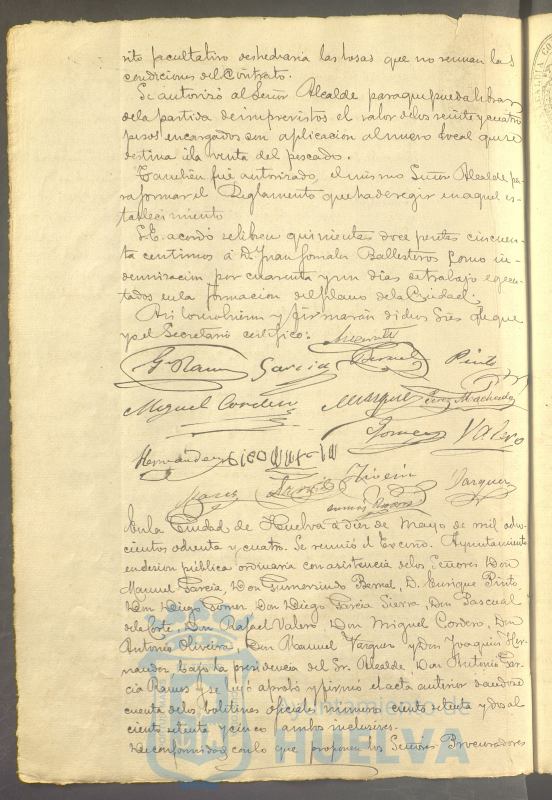 rito facultativo desharia las losas que no reunan las
condiciones del Contrato.
Se autorizó al Señor Alcalde para que pueda librar
de la partida de imprevistos el valor de los veinte y cuatro
pesos encargados con aplicacion al nuevo local que se
destina á la venta del pescado.
Tambien fué autorizado, el mismo Señor Alcalde pa-
ra formar el Reglamento que ha de regir en aquel es-
tablecimiento
S.E. acordó se libren quinientas doce pesetas cincuen-
ta centimos á D. Juan Gonzalez Ballesteros como in-
demnizacion por cuarenta y un dias de trabajo ejecu-
tados en la formacion del plano de la Ciudad.
Asi lo resolvieron y firmarán dichos Sres. de que
yo el Secretario certifico:
G. Ramos Garcia Bernal Pinto
Miguel Cordero Marquez Perez Machado
Gomez Valero
Hernandez
Oliveira Vazquez
En la Ciudad de Huelva á diez de Mayo de mil ocho-
cientos ochenta y cuatro. Se reunió el Excmo. Ayuntamiento
en sesion pública ordinaria con asistencia de los Señores Don
Manuel Garcia, Don Gumersindo Bernal, D. Enrique Pinto,
Don Diego Gomez, Don Diego Garcia Sierra, Don Pascual
de la Corte, Don Rafael Valero, Don Miguel Cordero, Don
Antonio Oliveira, Don Manuel Vazquez y Don Joaquin Her-
nandez bajo la presidencia del Sr. Alcalde Don Antonio Gar-
cia Ramos y se leyó aprobó y firmó el acta anterior dandose
cuenta de los boletines oficiales números ciento setenta y dos al
ciento setenta y cinco ambos inclusives.
De conformidad con lo que proponen los Señores Procuradores
Ayuntamiento de
HUELVA